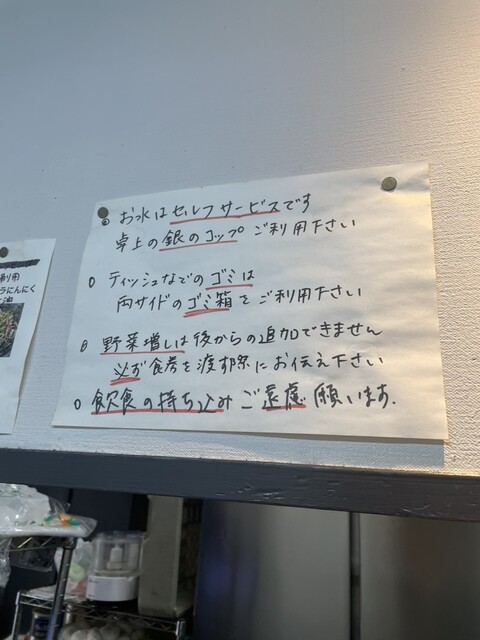 お水はセルフサービスです
卓上の銀のコップご利用下さい
○ ティッシュなどのゴミは
両サイドのゴミ箱をご利用下さい
○ 野菜増しは後からの追加できません
必ず食券を渡す際にお伝え下さい
○ 飲食の持ち込みご遠慮願います.
利用
うにんにく